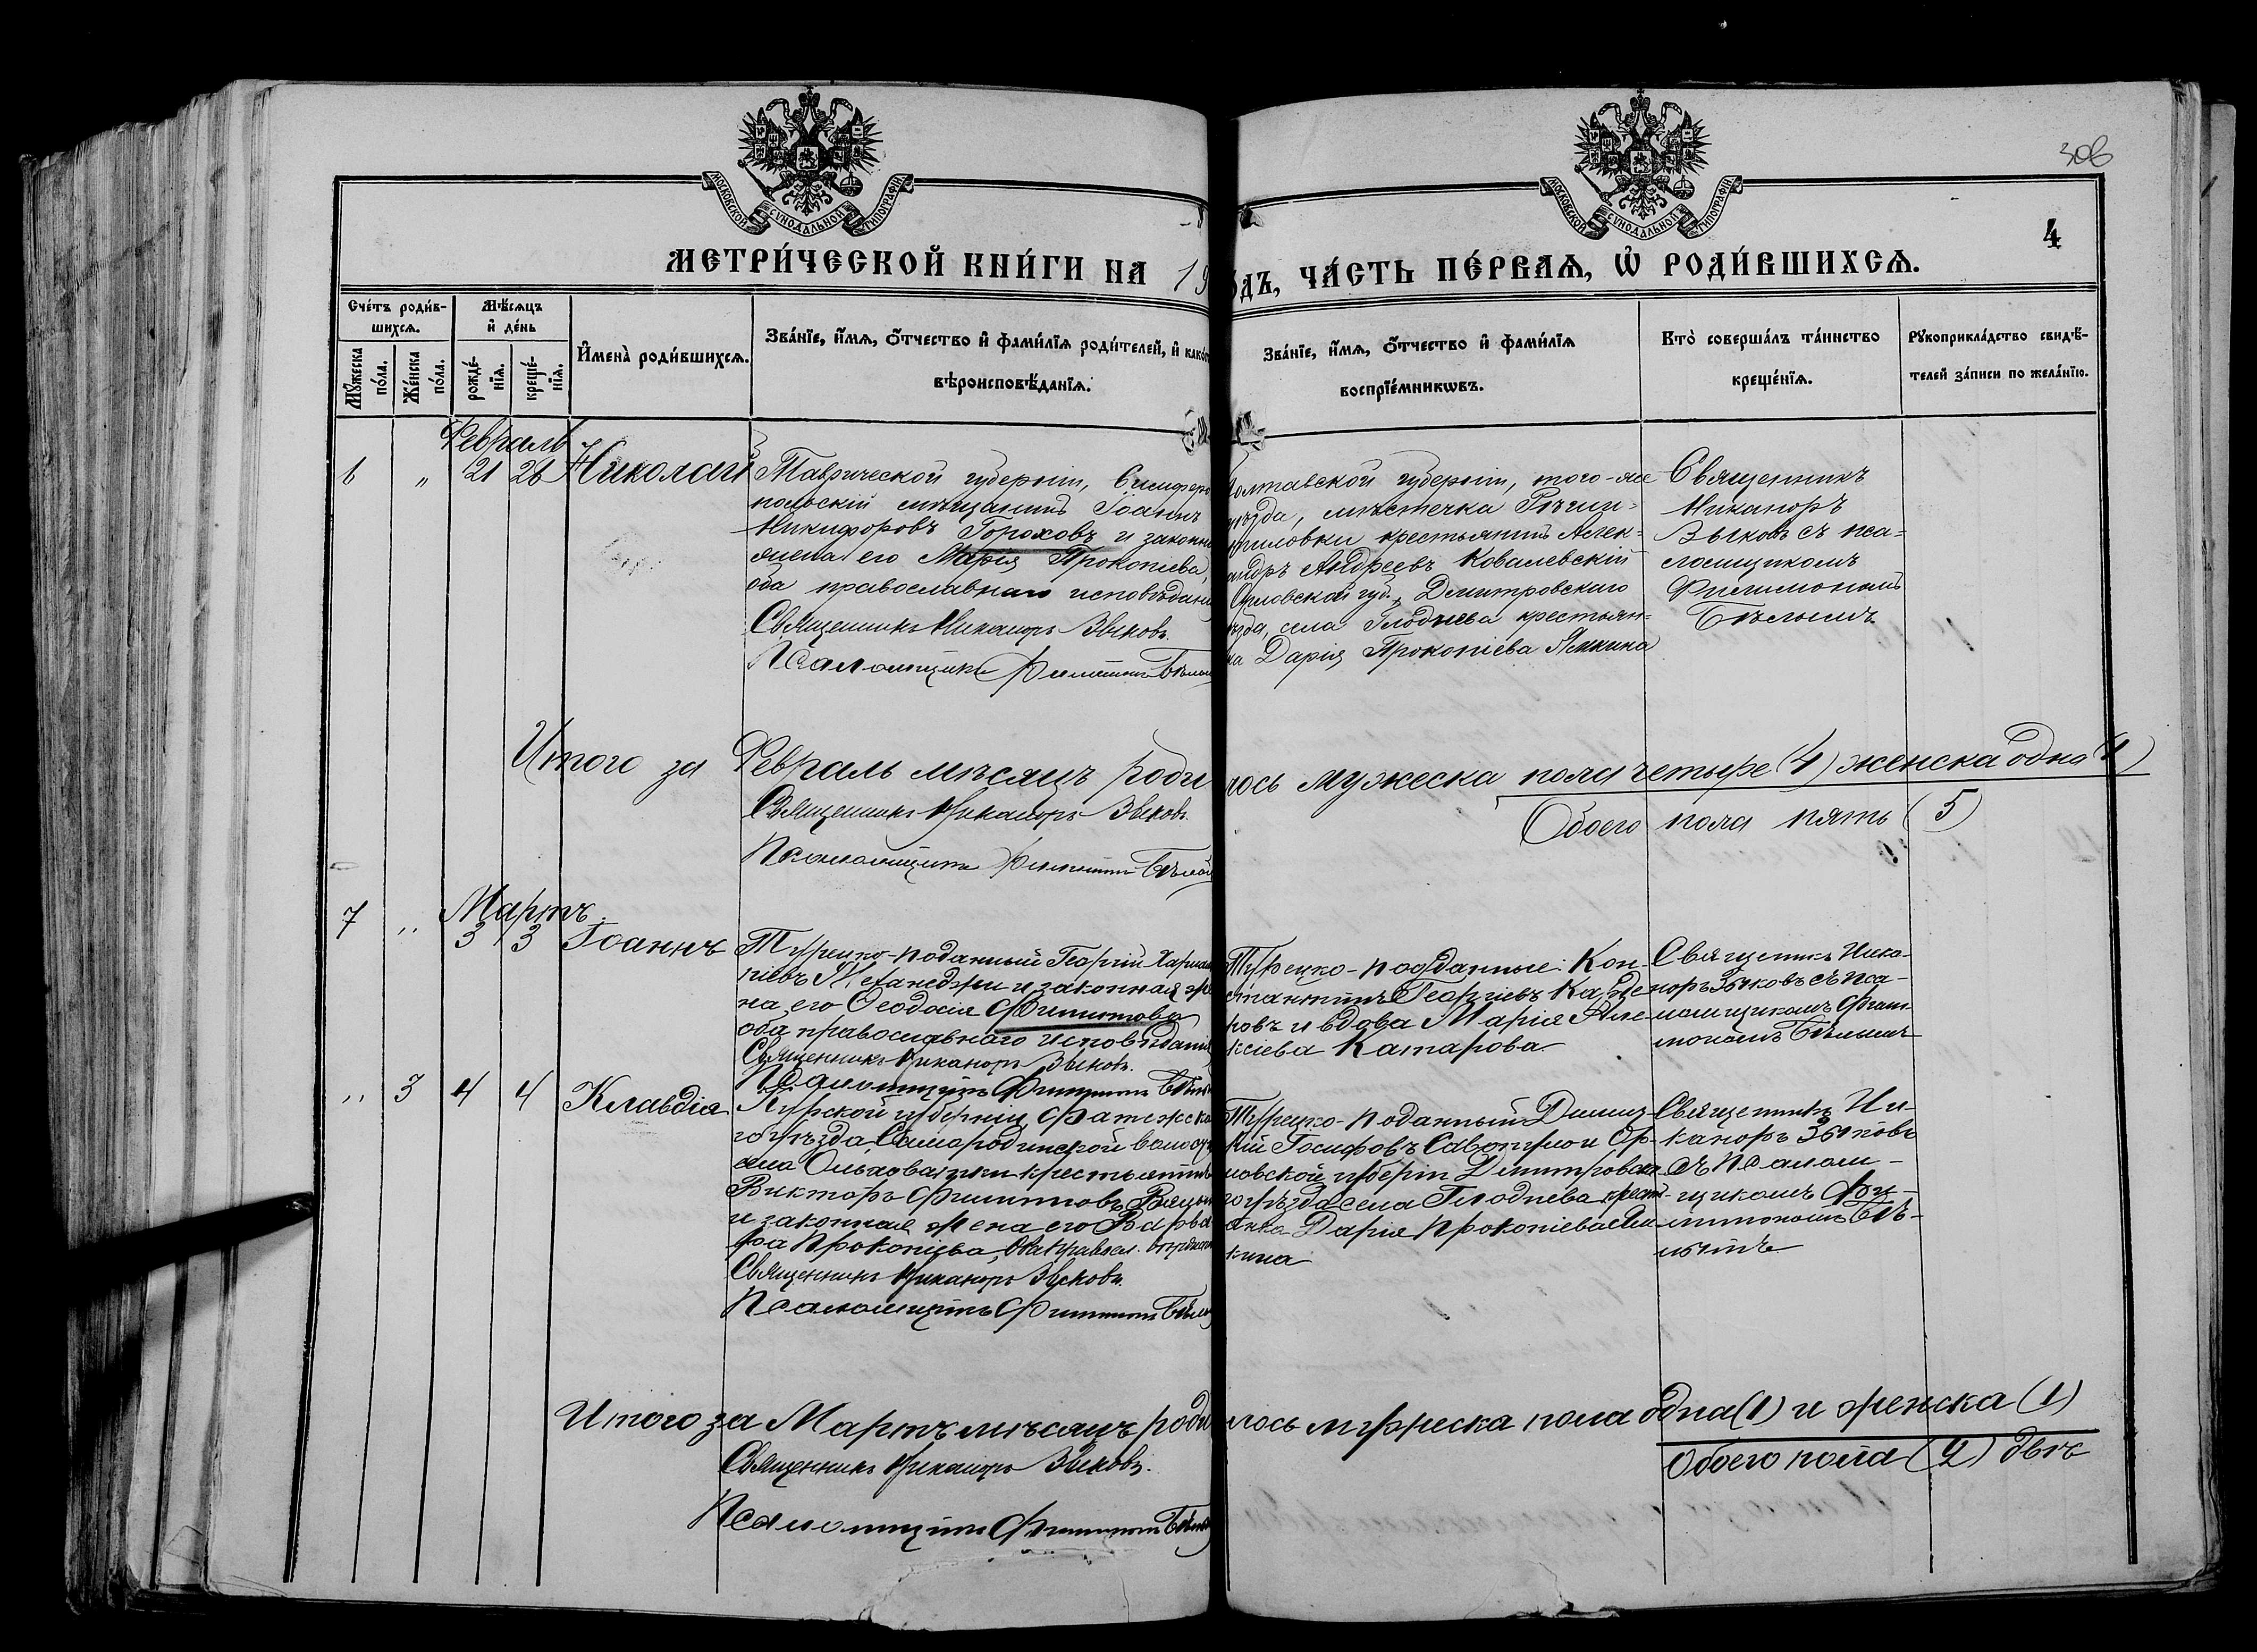 306
МОСКОВСКОЙ СѴНОДАЛЬНОЙ ТИПОГРАФІИ
МОСКОВСКОЙ СѴНОДАЛЬНОЙ ТИПОГРАФІИ
4
МЕТРИ́ЧЕСКОЙ КНИ́ГИ НА 19
ДЪ, ЧА́СТЬ ПЕ́РВАѦ, Ѡ҆ РОДИ́ВШИХСѦ.
Сче́тъ роди́в-
шихсѧ.
Мѣ́сѧцъ
и҆ де́нь
Мꙋ́жеска
по́ла.
Же́нска
по́ла.
рожде́-
нїѧ.
креще́-
нїѧ.
И҆мена̀ роди́вшихсѧ.
Зва́нїе, и҆́мѧ, ѻ҆́тчество и҆ фами́лїѧ роди́телей, и҆
вѣроисповѣ́данїѧ.
Зва́нїе, и҆́мѧ, ѻ҆́тчество и҆ фами́лїѧ
воспрїе́мникѡвъ.
Кто̀ соверша́лъ та́инство
креще́нїѧ.
Рꙋкоприкла́дство свидѣ́-
телей за́писи по жела́нїю.
Февраль
6 „ 21 26 Николай
Таврической губерніи, Симферо
польскій мѣщанинъ Іоаннъ
Никифоровъ Гороховъ и законна
жена его Марія Прокопіева,
оба православнаго исповѣдані
Священникъ Никаноръ Зыковъ.
Псаломщикъ Филимонъ Бѣлы
олтавской губерніи, того-же
ѣзда, мѣстечка
крестьянинъ Алек-
андръ Андреевъ Ковалевскій
Орловской губ., Димитровскаго
ѣзда, села Глоднева крестьян-
ка Дарія Прокопіева
Священникъ
Никаноръ
Зыковъ съ пса-
ломщикомъ
Филимономъ
Бѣлымъ
Итого за Февраль мѣсяцъ роди
лось мужеска пола четыре (4) женска одна (1)
Обоего пола пять (5)
Священникъ Никаноръ Зыковъ.
Псаломщикъ Филимонъ Бѣлый
Мартъ
7 „ 3 3 Іоаннъ
Турецко-поданный Георгій
и законная же
на его Ѳеодосія Филиппова
оба православнаго исповѣданія
Священникъ Никаноръ Зыковъ.
Псаломщикъ Филимонъ Бѣлы
Турецко-подданные: Кон-
стантинъ Георгіевъ
ровъ и вдова Марія Але-
ксіева Катарова.
Священникъ Ника-
норъ Зыковъ съ пса-
ломщикомъ Фили-
мономъ Бѣлымъ
„ 3 4 4 Клавдія
Курской губерніи, Фатежска
го уѣзда, Самородинской волости
села Ольховатки крестьянинъ
Викторъ Филипповъ
и законная жена его Варва
ра Прокопіева, оба правосл.
Священникъ Никаноръ Зыковъ.
Псаломщикъ Филимонъ Бѣлы
Турецко-поданный Димит-
рій Іосифовъ и Ор-
ловской губерніи Димитровска
го уѣзда села Глоднева крест-
янка Дарія Прокопіева
кина
Священникъ Ни-
каноръ Зыковъ
съ Псалом-
щикомъ Фи-
лимономъ Бѣ-
лымъ
Итого за Мартъ мѣсяцъ роди
лось мужеска пола одна (1) и женска (1)
Обоего пола (2) двѣ
Священникъ Никаноръ Зыковъ.
Псаломщикъ Филимонъ Бѣлы